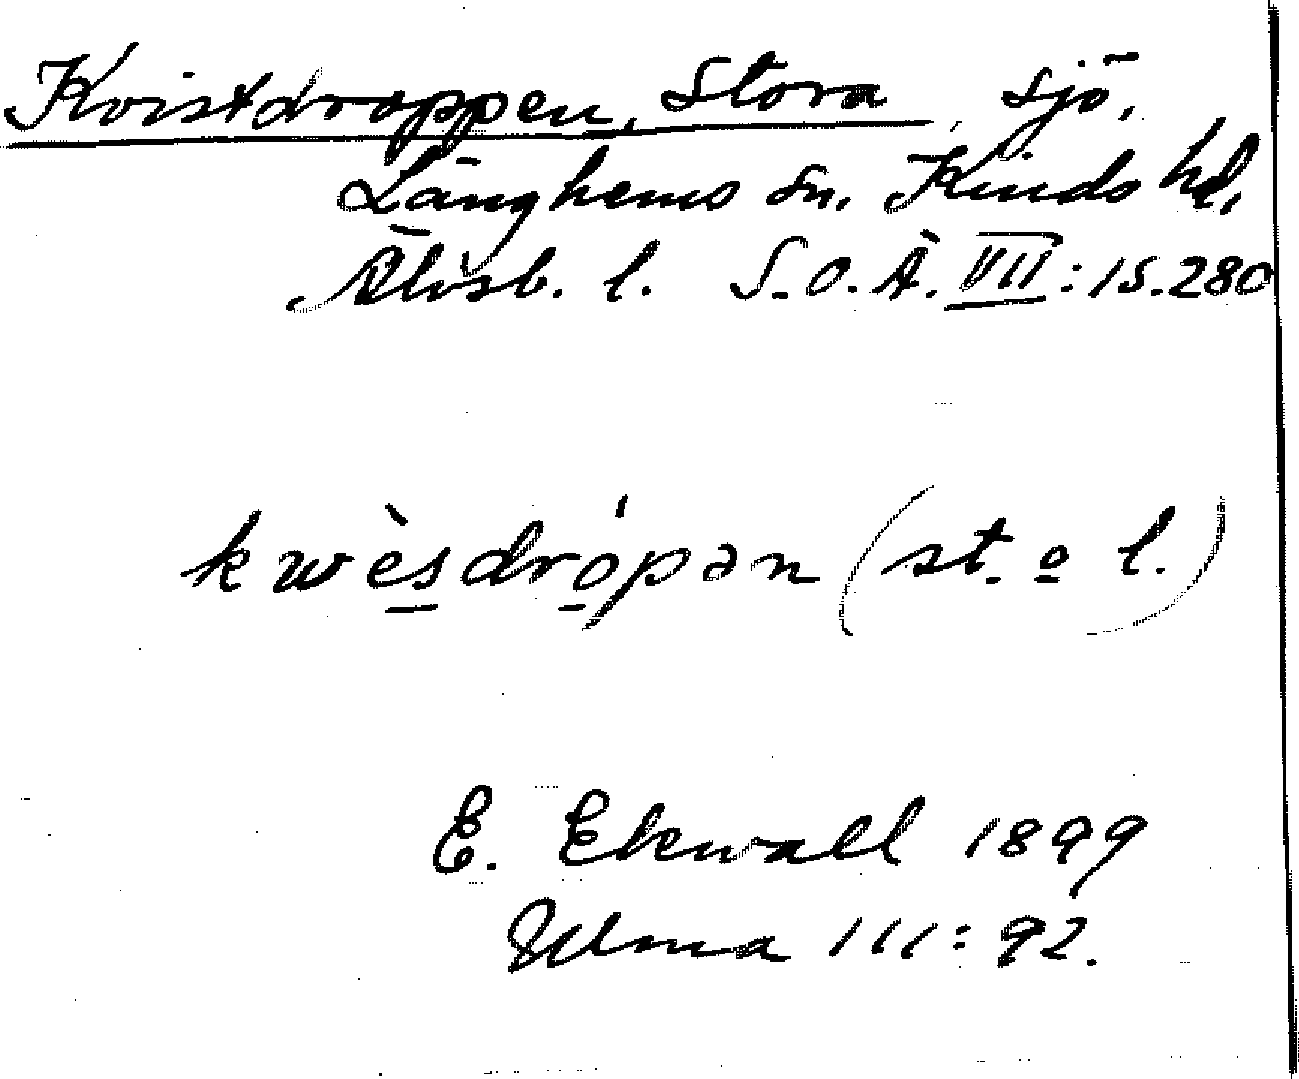 Kvistdroppen, Stora sjö,
Länghems sn. Kinds hd,
Älvsb. l. S.O.Ä. VII:1 S.280
kwèsdrópən (st. o l.)
E. Ekwall 1899
Ulma 111:92.